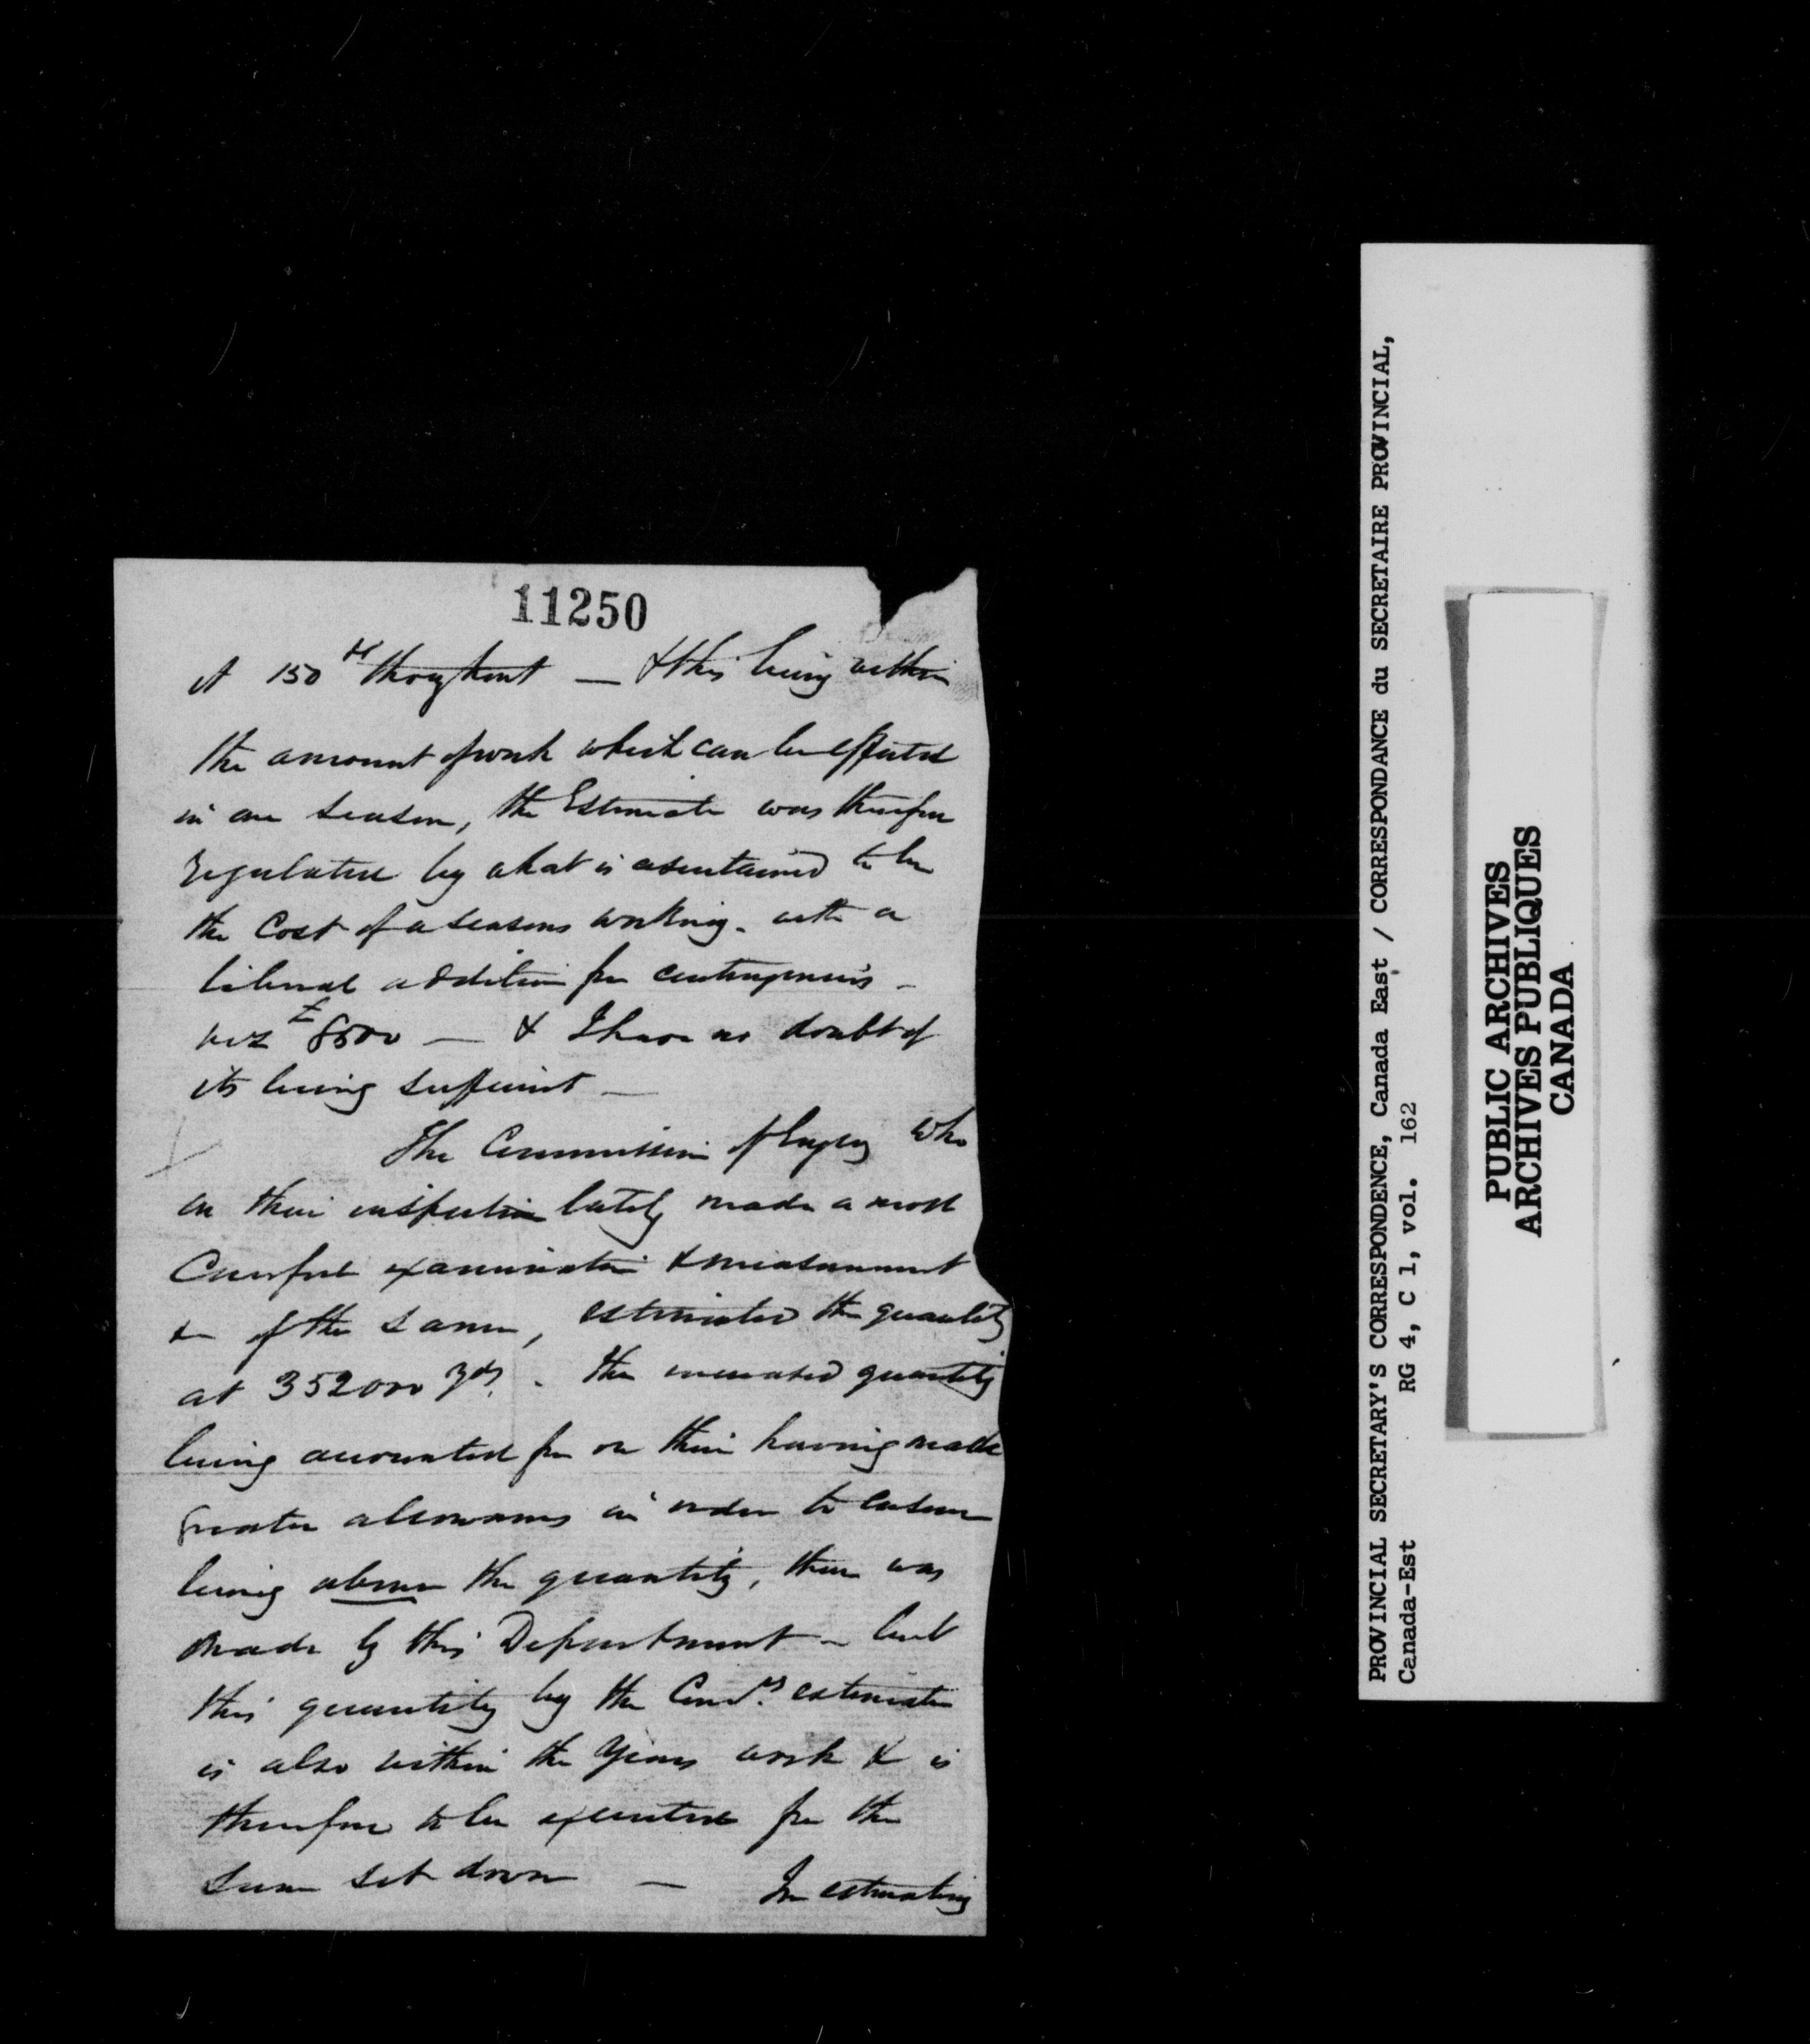 11250
at 150 ft throughout — & this being within
the amount of work which can be effected
in one season, the Estimate was therefore
regulated by what is ascertained to be
the Cost of a seasons working. with a
liberal addition for contingencies –
viz £8500 — & I have no doubt of
its being sufficient —
The Commission of Enquiry who
on their inspection lately made a most
Careful examination & measurement
&c of the same, estimated the quantity
at 352000 yds. the increased quantity
being accounted for on their having made
greater allowances in order to ensure
being above the quantity, than was
made by this Department – but
this quantity by the Comrs. estimate
is also within the years work & is
therefore to be executed for the
Sum set down — In estimating
PROVINCIAL SECRETARY'S CORRESPONDENCE, Canada East / CORRESPONDANCE du SECRETAIRE PROVINCIAL,
Canada-Est RG 4, C 1, vol. 162
PUBLIC ARCHIVES
ARCHIVES PUBLIQUES
CANADA